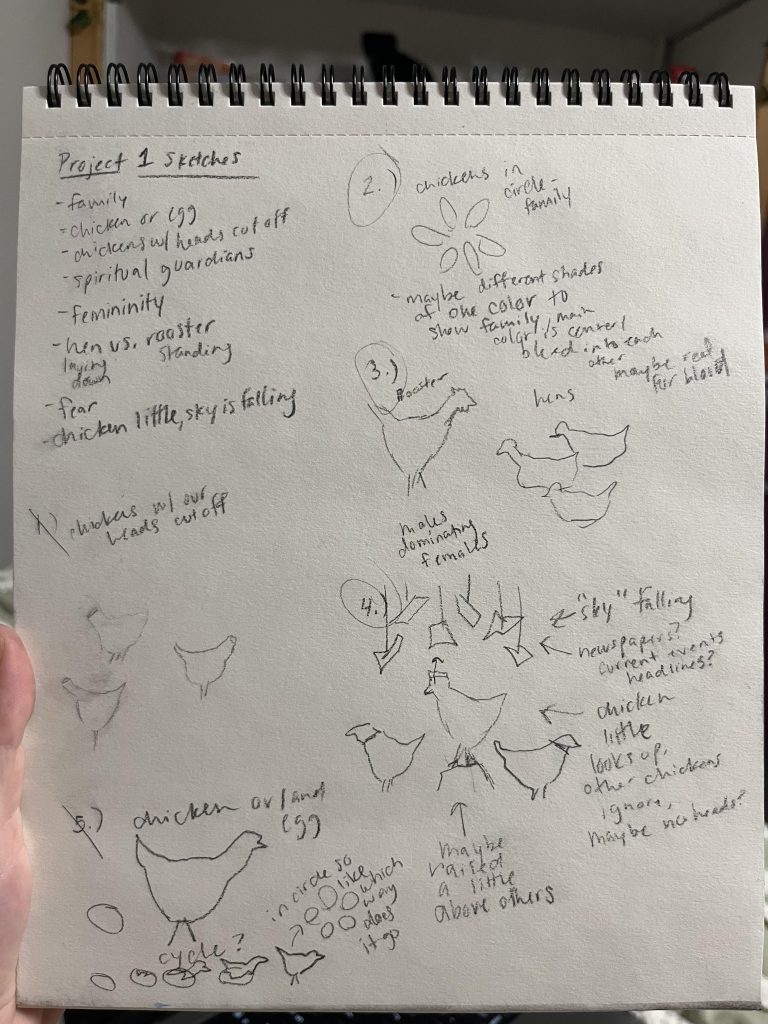 Project 1 Sketches
- family
- chicken or egg
- chickens w/ heads cut off
- spiritual guardians
- femininity
- hen vs. rooster
laying down
standing
- fear
- chicken little, sky is falling
1.)
chickens w/ our
heads cut off
2.)
chickens in
circle -
family
- maybe different shades
of one color to
show family / main
color is center /
bleed into each
other
maybe real
for blood
3.)
Rooster
hens
males
dominating
females
4.)
"sky" falling
newspapers?
current events
headlines?
chicken
little
looks up,
other chickens
ignore,
maybe no heads?
maybe
raised
a little
above others
5.)
chicken or/and
egg
cycle?
in circle so
like
which
way
does
it go